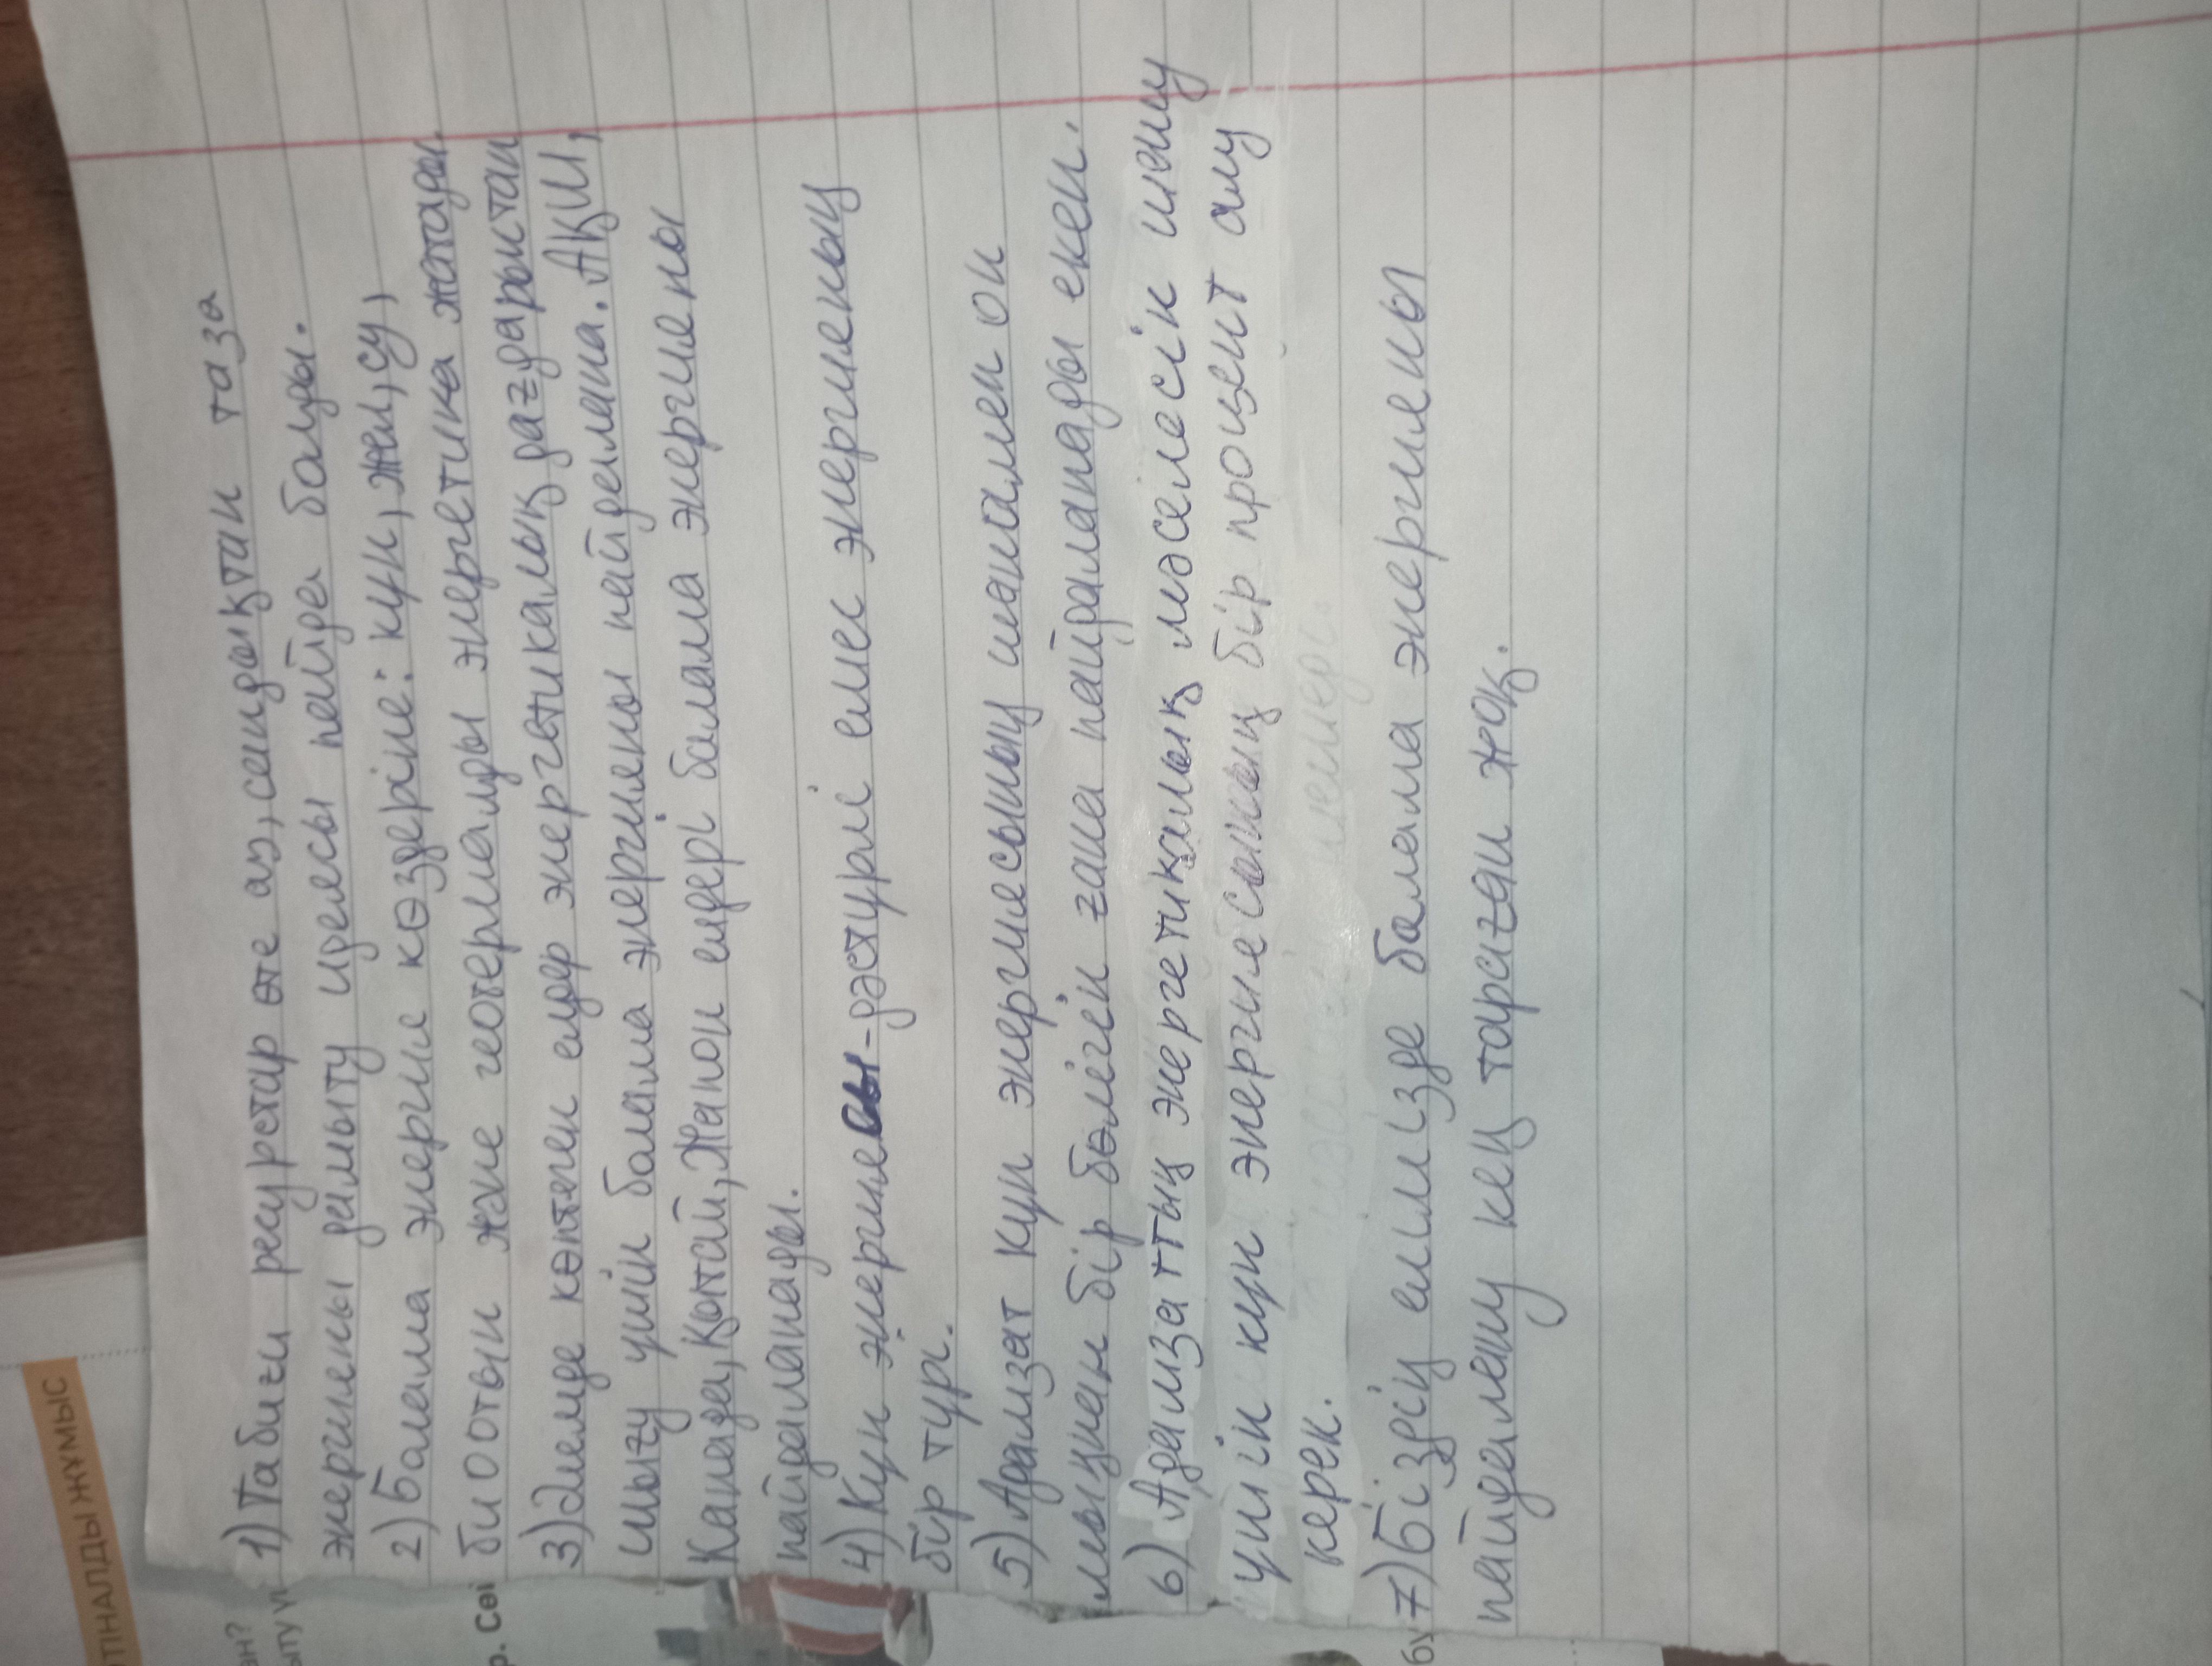 ПНАЛДЫ ЖҰМЫС
ән?
ыту
р. Сөй
бу
1) Табиғи ресурстар өте аз, сондықтан таза
энергияны дамыту идеясы пайда болды.
2) Балама энергия көздеріне: күн, жел, су,
биоотын және геотермалды энергетика жатады.
3) Әлемде көптеген елдер энергетикалық дағдарыстан
шығу үшін балама энергияны пайдалана. АҚШ,
Канада, Қытай, Жапон елдері балама энергияны
пайдаланады.
4) Күн энергиясы-дәстүрлі емес энергияның
бір түрі.
5) Адамзат күн энергиясының шамамен он
мыңнан бір бөлігін ғана пайдаланады екен.
6) Адамзаттың энергетикалық мәселесін шешу
үшін күн энергиясының бір процент алу
керек.
7) Біздің елімізде балама энергияны
пайдалану кең тараған жоқ.